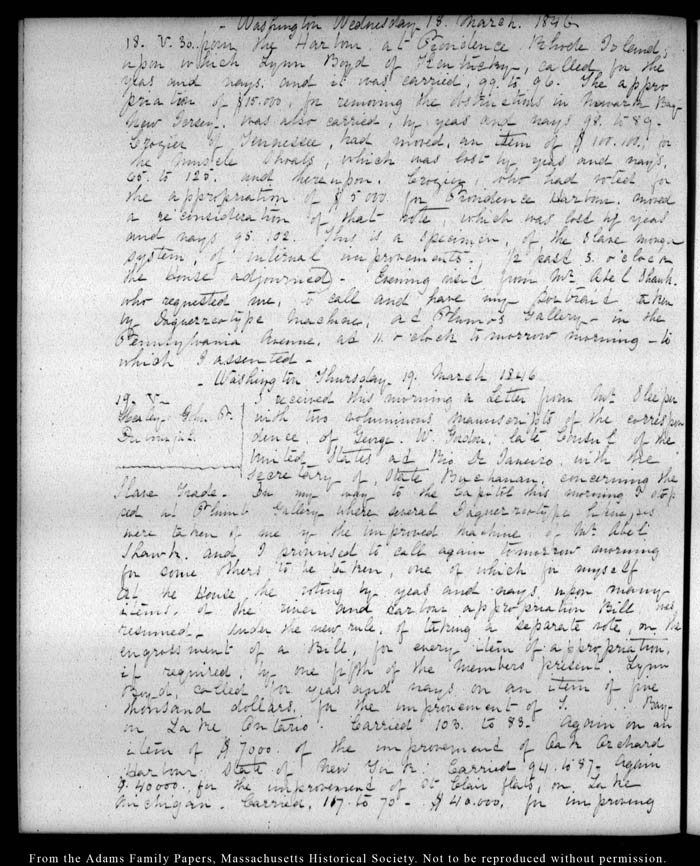 - Washington Wednesday 18. March. 1846
18. V. 30. from the Harbour at Providence, Rhode Island;
upon which Lynn Boyd of Kentucky, called for the
yeas and nays. and it was carried, 99. to 96. The appro
priation of $15.000, for removing the obstructions in Newark Bay
New Jersey. was also carried, by yeas and nays 98. to 89.
Crozier of Tennessee, had moved, an item of $100.100, for
the Muscle Shoals, which was lost by yeas and nays,
65. to 125. and hereupon, Crozier, who had voted for
the appropriation of $5000 for Providence Harbour. moved
a reconsideration of that vote, which was lost by yeas
and nays 95. 102. This is a specimen, of the slave monger
system, of internal improvements. 1/2 past 3. o'clock
the House adjourned - Evening visit from Mr Abel Shawk.
who requested me, to call and have my portrait taken
by Daguerreotype Machine, at Plumb's Gallery - in the
Pennsylvania Avenue, at 11. o'clock tomorrow morning - to
which I assented -
- Washington Thursday 19. March 1846
19. V.
Healey George P.
I received this morning a Letter from Mr Sleeper
with two voluminous manuscripts of the correspon
dence, of George. W. Gordon, late Consul of the
United States at Rio de Janeiro, with the
Secretary of State Buchanan, concerning the
Slave Trade. - On my way to the Capitol this morning I stop
ped at Plumb Gallery where several Daguerreotype likenesses
were taken of me by the improved machine of Mr Abel
Shawk. and I promised to call again tomorrow morning
for some others to be taken, one of which for myself
At the House the voting by yeas and nays, upon many
items. of the river and harbour appropriation Bill was
resumed - Under the new rule, of taking a separate vote, on the
engrossment of a Bill, for every item of appropriation,
if required, by one fifth of the members present, Lynn
Boyd, called for yeas and nays on an item of five
thousand dollars, for the improvement of S. Bay
on Lake Ontario Carried 103. to 83 - Again on an
item of $7000. of the improvement of Oak Orchard
Harbour State of New York. Carried 94. to 87 - Again
$40000, for the improvement of St Clair flats, on Lake
Michigan. Carried, 117. to 70 - $40.000, for improving
From the Adams Family Papers, Massachusetts Historical Society. Not to be reproduced without permission.